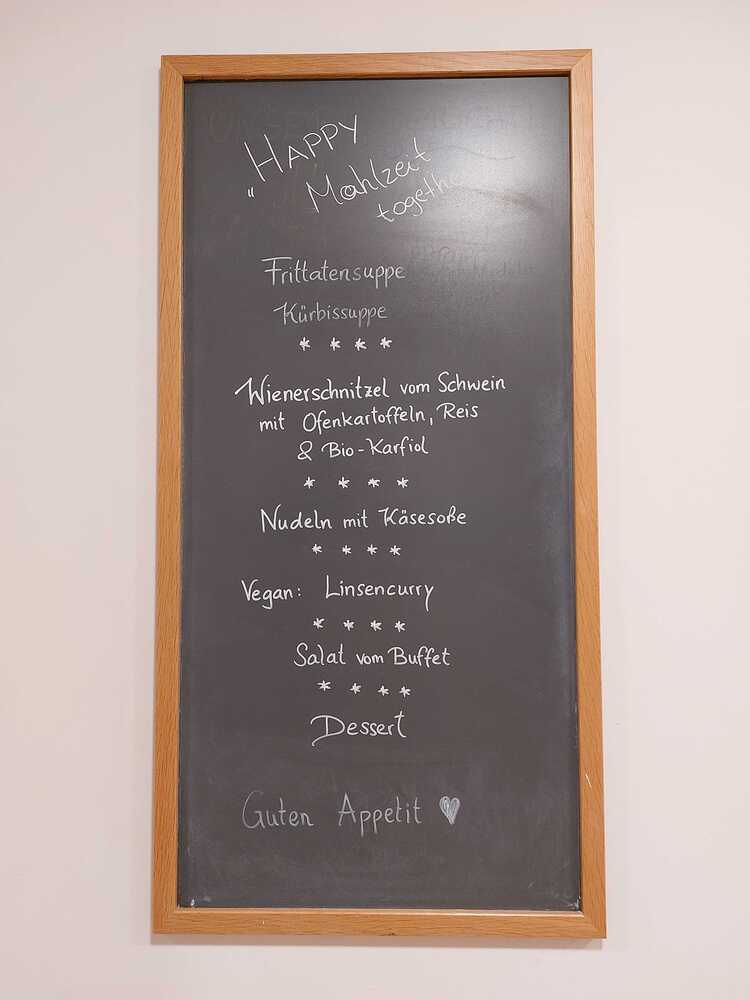 „HAPPY
Mahlzeit
together
Frittatensuppe
Kürbissuppe
* * * *
Wienerschnitzel vom Schwein
mit Ofenkartoffeln, Reis
& Bio-Karfiol
* * * *
Nudeln mit Käsesoße
* * * *
Vegan: Linsencurry
* * * *
Salat vom Buffet
* * * *
Dessert
Guten Appetit ♥